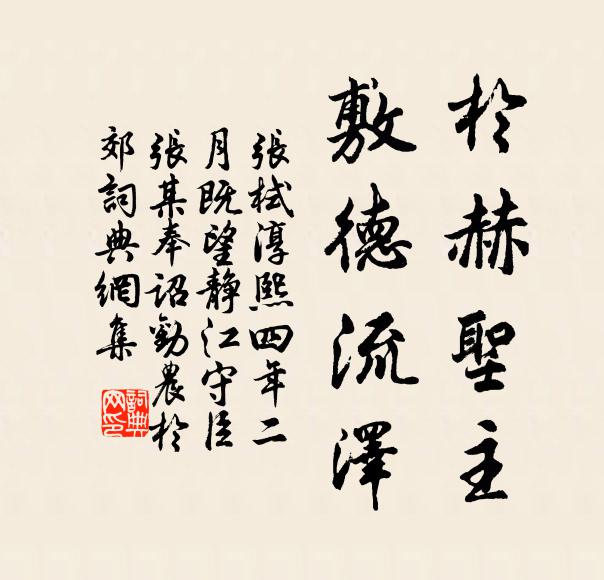 於赫聖主
敷德流澤
張栻淳熙四年二
月既望靜江守臣
張某奉詔勸農於
郊詞典網集
詞典
网印